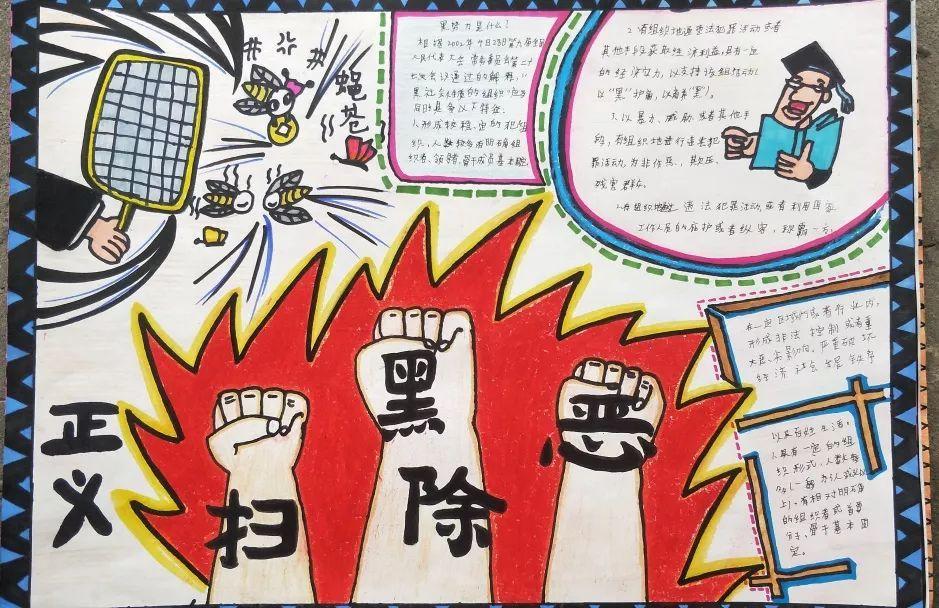 黑势力是什么?
根据2002年4月28日第九届全国
人民代表大会常务委员会第二十
七次会议通过的解释,"
黑社会性质的组织"应当
同时具备以下特征:
1.形成较稳定的犯罪组
织,人数较多有明确组
织者、领导者,骨干成员基本固定
2.有组织地通过违法犯罪活动或者
其他手段获取经济利益,具有一定
的经济实力,以支持该组织活动(
以"黑"护商,以商养"黑")。
3.以暴力、威胁或者其他手
段,有组织地进行违法犯
罪活动,为非作歹,欺压、
残害群众。
违法犯罪活动,或者利用国家
工作人员的庇护或者纵容,称霸一方,
在一定区域内或者行业内,
形成非法控制或者重
大影响,严重破坏
经济社会生活秩序
以及百姓生活。
1.具有一定的组
织形式,人数较
多(一般为3人或以
上)。有相对明确
的组织者或首要
分子,骨干基本固
定。
蝇
苍
正义
扫
黑
除
恶